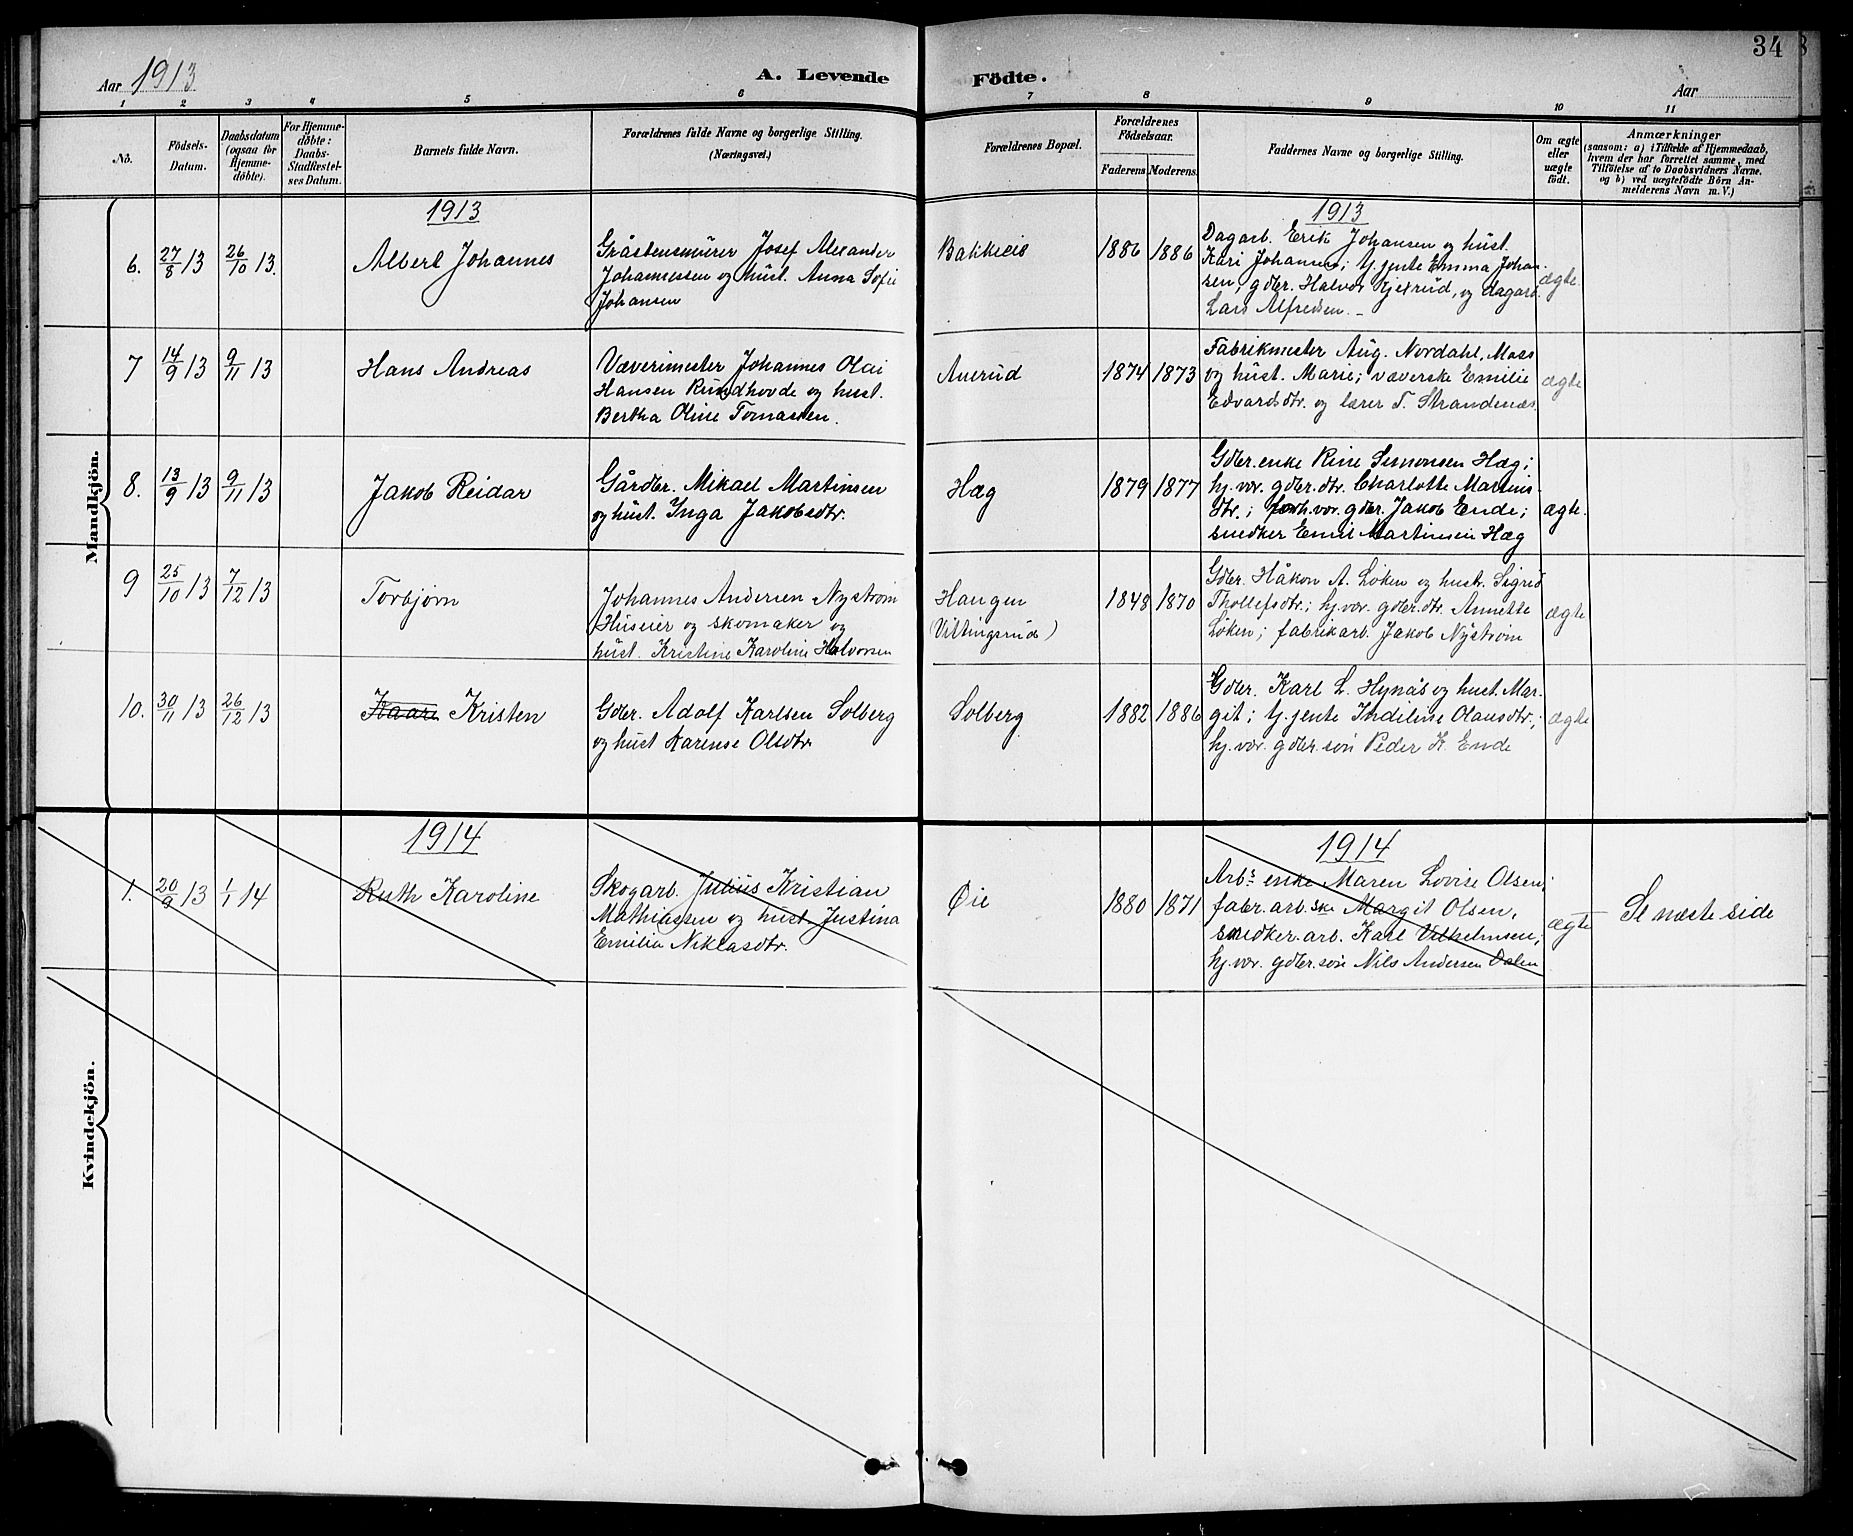 Aar 1913
A. Levende Födte.
Aar
34
1 2 3 4 5 6 7 8 9 10 11
No.
Födsels-
Datum.
Daabsdatum
(ogsaa for
Hjemme-
döbte).
For Hjemme-
döbte:
Daabs-
Stadfæstel-
ses Datum.
Barnets fulde Navn.
Forældrenes fulde Navne og borgerlige Stilling.
(Næringsvei.)
Forældrenes Bopæl.
Forældrenes
Födselsaar.
Faderens Moderens.
Faddernes Navne og borgerlige Stilling.
Om ægte
eller
uægte
födt.
Anmærkninger
(saasom: a) i Tilfælde af Hjemmedaab,
hvem der har forrettet samme, med
Tilföielse af to Daabsvidners Navne.
og b) ved uægtefödte Börn An-
melderens Navn m. V.)
Mandkjön.
1913
1913
6. 27/8 13 26/10 13.
Albert Johannes
Gråstensmurer Josef Alexander
Johannessen og hust. Anna Sofie
Johansen
1886 1886
Dagarb. Erik Johansen og hust.
Kari Johansen; tj. jente Emma Johan-
sen; gdbr. Halvor, og dagarb.
Lars Alfredsen.
ægte.
7 14/9 13 9/11 13
Hans Andreas
Væverimester Johannes Olai
Hansen Rundhovde og hust.
Bertha Oline Tomassen.
Auerud
1874 1873
Fabrikmester Aug. Nordahl, Moss
og hust. Marie; væverske Emilie
Edvardsdtr. og lærer T. Strandenæs
ægte
8. 13/9 13 9/11 13
Jakob Reidar
Gårdbr. Mikael Martinsen
og hust. Inga Jakobsdtr.
Hæg
1879 1877
Gdbr. enke Rine Simonsen Hæg;
hj. vær. gdbr. dtr. Charlotte Martins-
dtr.; forh. vær. gdbr. Jakob Ende;
snedker Emil Martinsen Hæg
ægte.
9 25/10 13 7/12 13
Torbjørn
Johannes Andersen Nystrøm
Huseier og skomaker og
hust. Kristine Karoline Halvorsen
Haugen
(Viltingsrud)
1848 1870
Gdbr. Håkon A. Løken og hustr. Sigrid
Thollefsdtr.; hj. vær. gdbr. dtr. Annette
Løken; fabrikarb. Jakob Nystrøm
ægte
10. 30/11 13 26/12 13
Kaare Kristen
Gdbr. Adolf Karlsen Solberg
og hust Karense Olsdtr.
Solberg
1882 1886
Gdbr. Karl L. Hynås og hust. Mar-
git; tj. jente Indiline Olausdtr.;
hj. vær. gdbr. søn Peder K. Ende
ægte
Kvindekjön.
1914
1914
1. 20/9 13 1/1 14
Ruth Karoline
Skogarb. Julius Kristian
Mathiassen og hust. Justina
Emilia Niklasdtr.
Øie
1880 1871
Arbs enke Maren Lovise Olsen;
fabr. arb.ske Margit Olsen,
snedker. arb. Karl Vilhelmsen;
hj. vær. gdbr. søn Nils Andersen Dalen
ægte
Se næste side